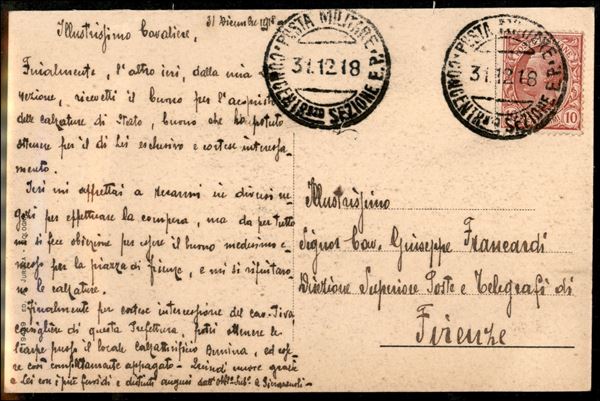 31 Dicembre 1918
Illustrissimo Cavaliere,
Finalmente, l'altro ieri, dalla mia
Sezione, ricevetti il buono per l'acquisto
delle calzature di Stato, buono che ho potuto
ottenere per il di Lei esclusivo e cortese interessa-
mento.
Ieri mi affrettai a recarmi in diversi ne-
gozi per effettuare la compera, ma da per tutto
mi si fece obiezione per essere il buono medesimo e-
messo per la piazza di Firenze, e mi si rifiutaro-
no le calzature.
Finalmente per cortese intercessione del cav.
consigliere di questa Prefettura, potei ottenere le
scarpe presso il locale calzaturificio, ed
così completamente appagato - Quindi
a Lei con i più fervidi e distinti auguri dall'
POSTA MILITARE
31.12.18
CONCENTRto SEZIONE E.P.
POSTA MILITARE
31.12.18
CONCENTRto SEZIONE E.P.
10
Illustrissimo
Signor Cav. Giuseppe Francardi
Direzione Superiore Poste e Telegrafi di
Firenze